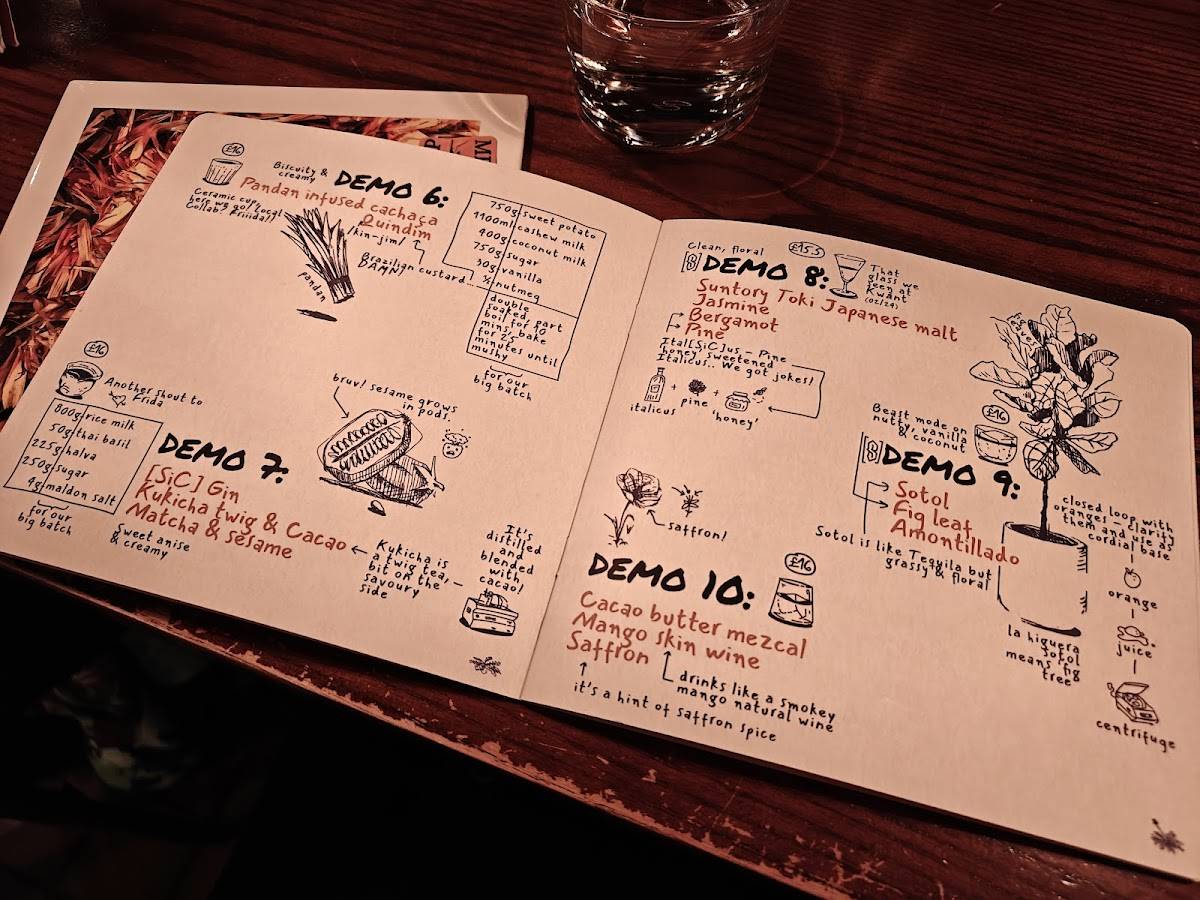 £16
Biscuity &
creamy
DEMO 6:
Pandan infused cachaça
Quindim
/kin-jim/
Brazilian custard...
DAMN!
Ceramic cup,
here we go! Local
Collab? Friiida!!
pandan
750g sweet potato
1100ml cashew milk
900g coconut milk
750g sugar
30g vanilla
½ nutmeg
double
soaked, part
boil for 10
mins, bake
for 25
minutes until
mushy
for our
big batch
£16
Another shout to
Frida
800g rice milk
50g thai basil
225g halva
250g sugar
4g maldon salt
for our
big batch
DEMO 7:
[SiC] Gin
Kukicha twig & Cacao
Matcha & sesame
Sweet anise
& creamy
bruv! sesame grows
in pods.
Kukicha is
a twig tea,
bit on the
savoury
side
It's
distilled
and
blended
with
cacao!
Clean, floral
£15.5
[8] DEMO 8:
That
glass we
seen at
Kwānt
(02/24)
Suntory Toki Japanese malt
Jasmine
Bergamot
Pine
Ital[SiC]us – Pine
'honey' sweetened
Italicus.. We got jokes!
italicus + pine + 'honey'
Beast mode on
nutty, vanilla
& coconut
£16
[8] DEMO 9:
Sotol
Fig leaf
Amontillado
Sotol is like Tequila but
grassy & floral
closed loop with
oranges – clarify
them and use as
cordial base
orange
juice
centrifuge
la higuera
sotol
means fig
tree
saffron!
DEMO 10:
£16
Cacao butter mezcal
Mango skin wine
Saffron
drinks like a smokey
mango natural wine
it's a hint of saffron spice